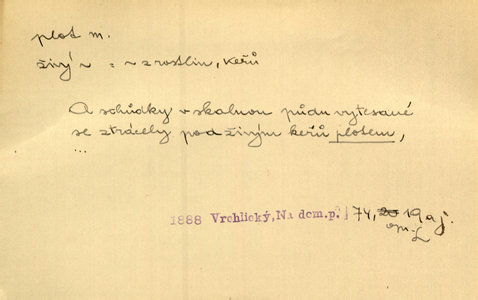 plot m.
živý ~ = ~ z rostlin, keřů
A schůdky v skalnou půdu vytesané
se ztrácely pod živým keřů plotem,
...
1888 Vrchlický, Na dom.p. 74, 19 aj.